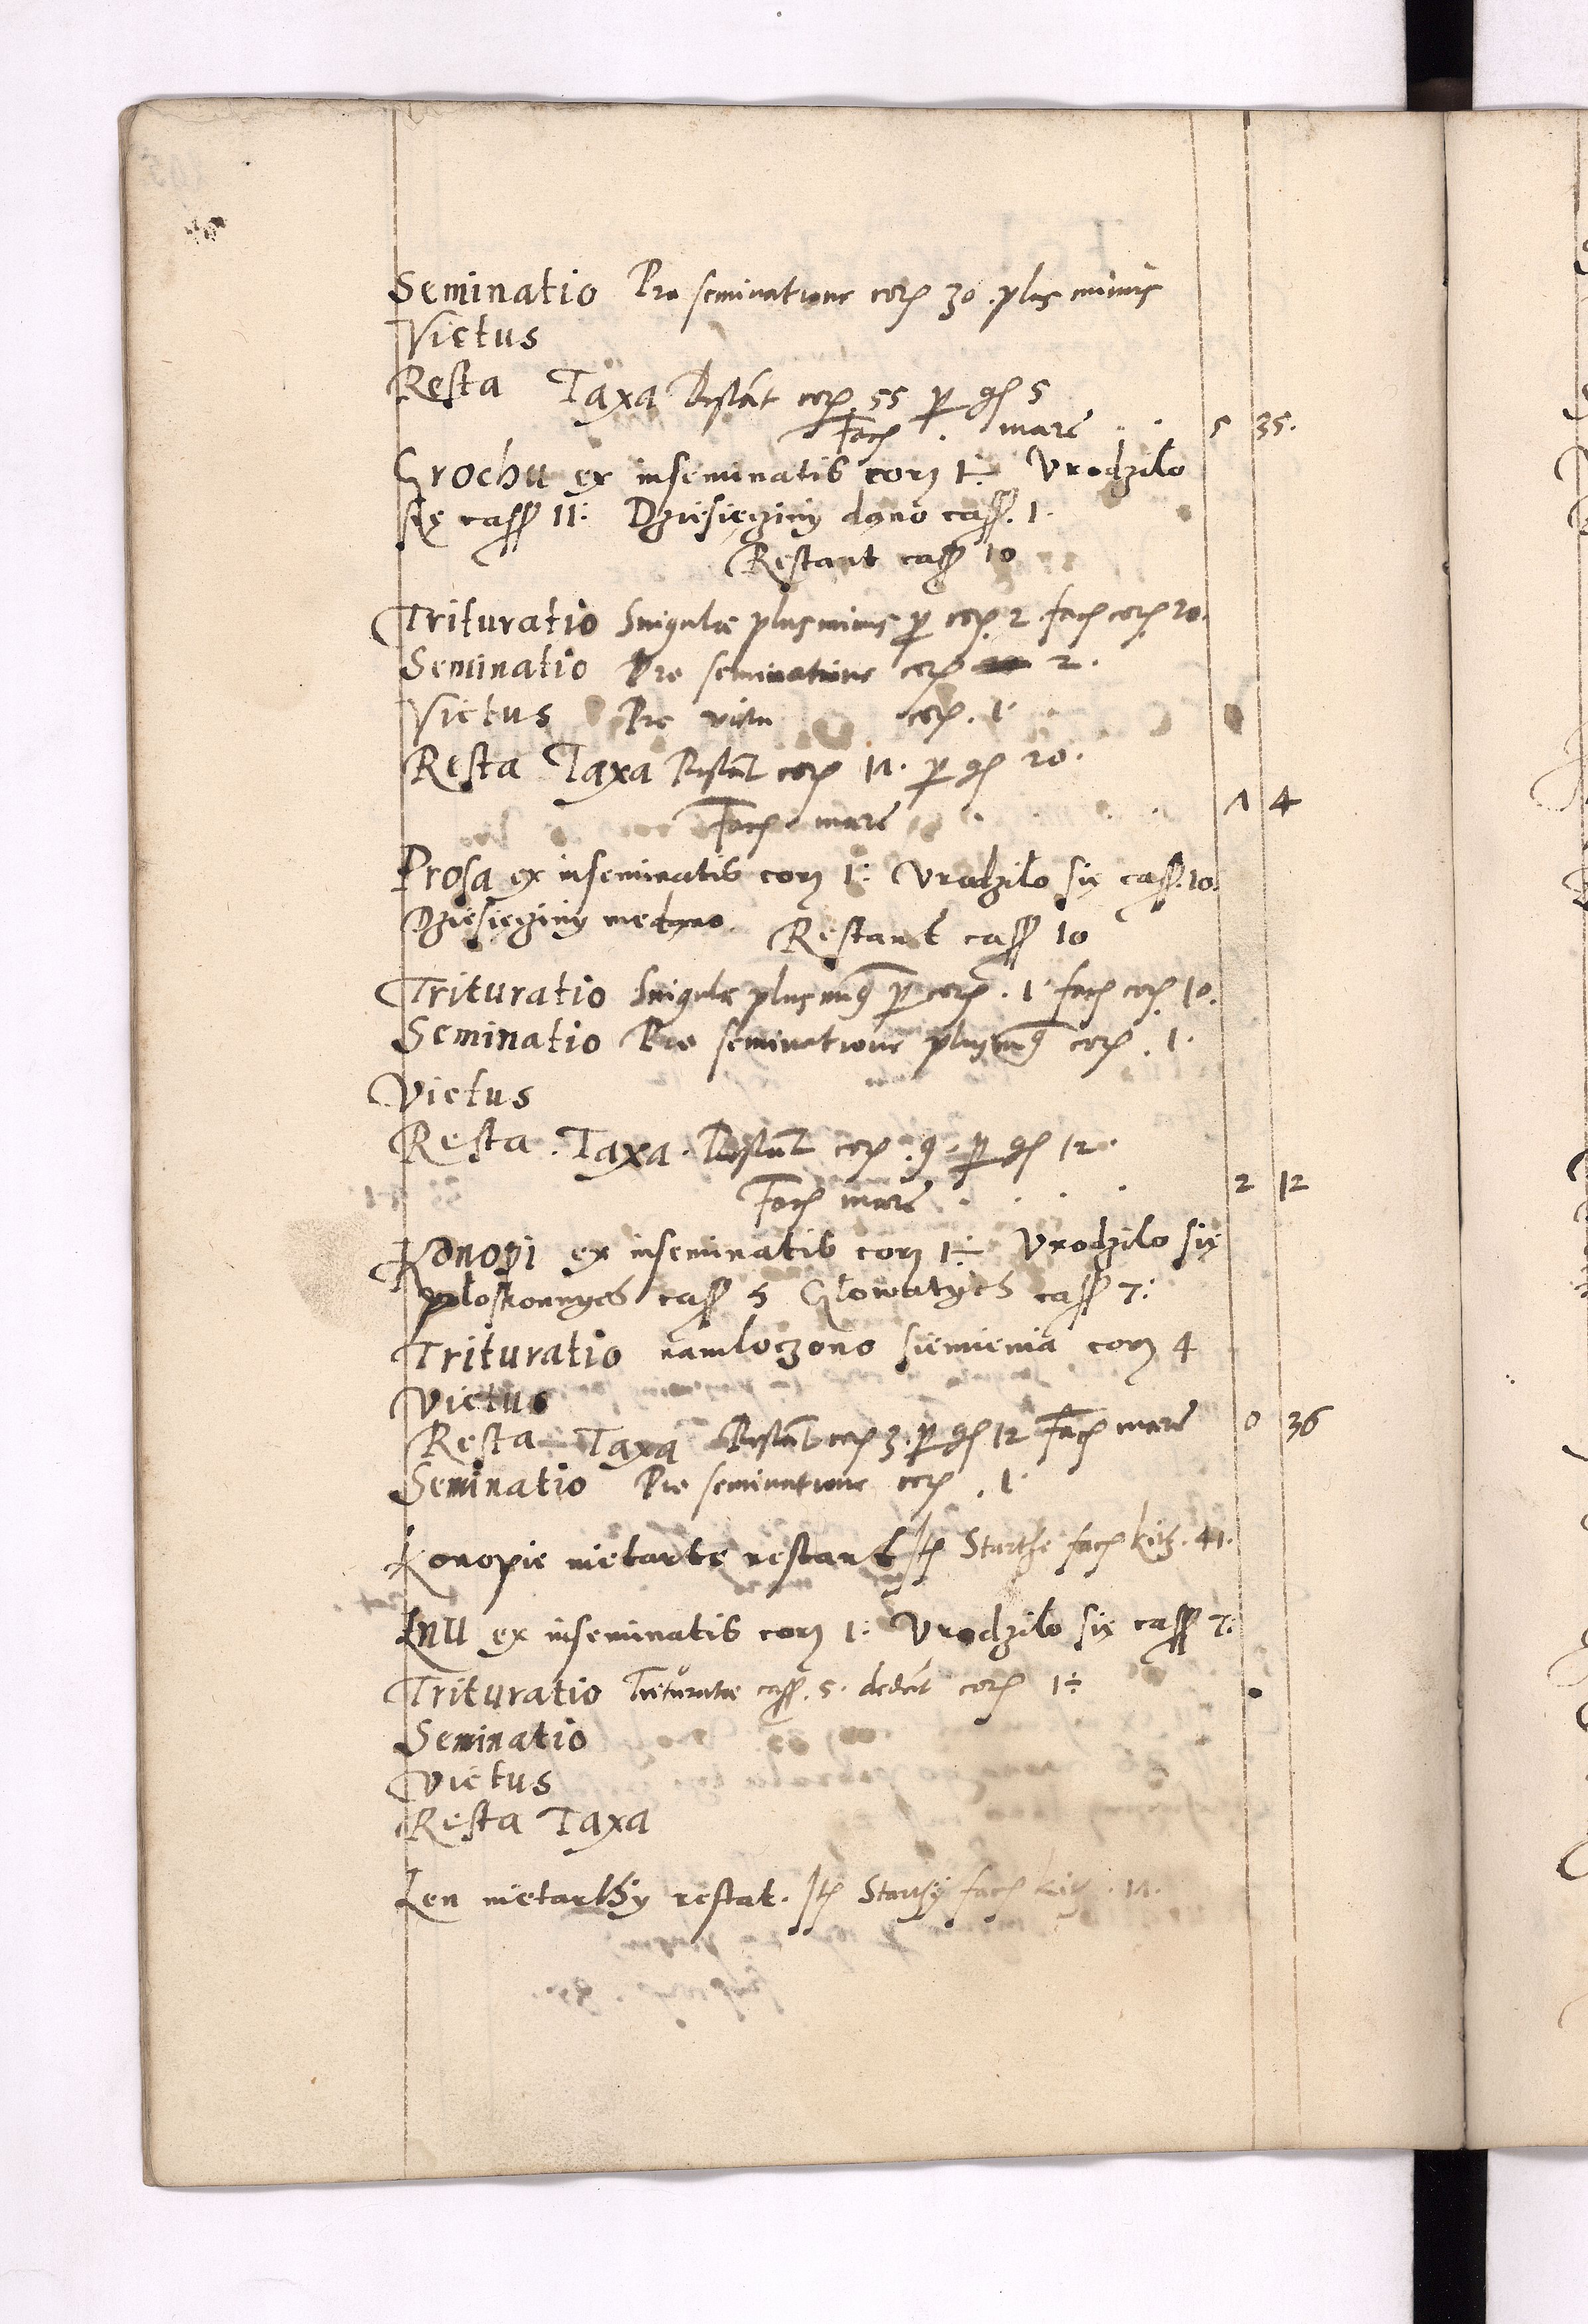 Seminatio Pro seminatione corȝ 30. plus minus
Victus
Resta Taxa Restāt corȝ 55 p gȝ 5
Facȝ . marc̄ . . 5 35.
Grochu ex inseminatis corȝ 1÷ Vrodzilo
się cass 11: Dziesięziny dano cass. 1.
Restant cass 10
Trituratio Singulæ plus minus p corȝ 2 facȝ corȝ 20.
Seminatio Pro seminatione corȝ 2.
Victus Pro victu corȝ. 1.
Resta Taxa Restāt corȝ 17. p gȝ 20.
Facȝ marc̄ . . . . 7 4
Prosa ex inseminatis corȝ 1: Vrodzilo się cass. 10.
Dziesięziny niedano. Restant cass 10
Trituratio Singulæ plus min9 p corȝ. 1 facȝ corȝ 10.
Seminatio Pro seminatione plus min9 corȝ. 1.
Victus
Resta. Taxa. Restāt corȝ. 9. p gȝ 12.
Facȝ marc̄ . . . . 2 12
Konopi ex inseminatis corȝ 1÷ Vrodzilo się
ploskonnych cass 5 Glowatych cass 7:
Trituratio namloczono siemienia corȝ 4
Victus
Resta Taxa Restāt corȝ 3. p gȝ 12 Facȝ marc̄ 0 36
Seminatio Pro seminatione corȝ. 1.
Konopie nietarte restant Itȝ Starthe facȝ kitȝ. 41.
Lnu ex inseminatis corȝ 1: Vrodzilo się cass 7:
Trituratio Trituratæ cass. 5. dedēt corȝ 1÷
Seminatio
Victus
Resta Taxa
Len nietarthy restat. Itȝ Starthy facȝ kitȝ. 17.